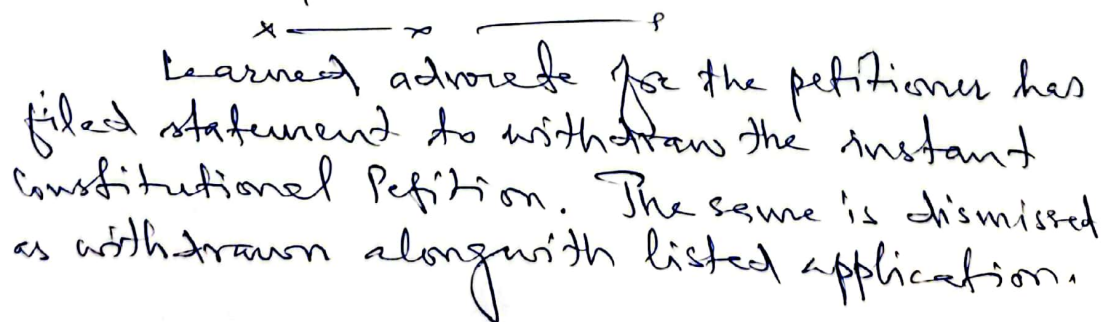 x ——— x ———
Learned advocate for the petitioner has
filed statement to withdraw the instant
Constitutional Petition. The same is dismissed
as withdrawn alongwith listed application.